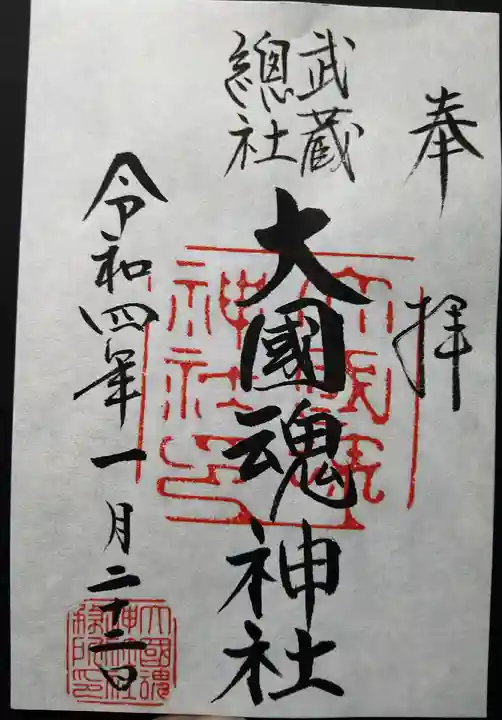 奉拝
武蔵
總社
大國魂神社
令和四年一月二十二日
大國魂
神社